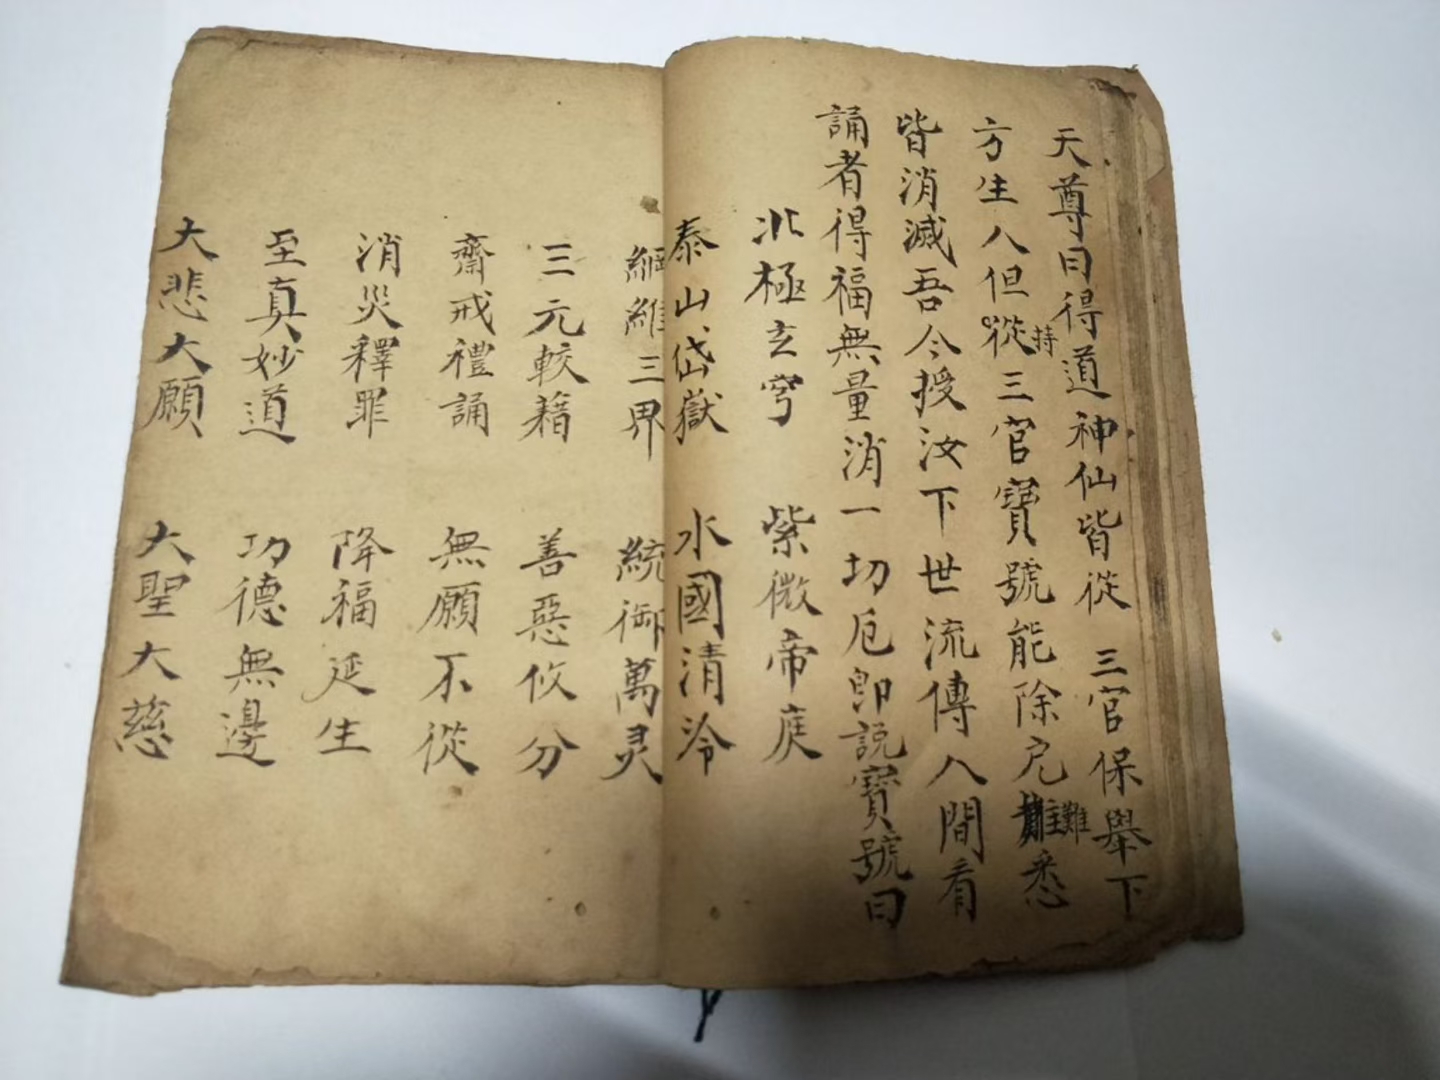 天尊曰得道神仙皆從 三官保舉下
方生人但從持三官寶號能除危難悉
皆消滅吾今授汝下世流傳人間看
誦者得福無量消一切厄即説寶號曰
北極玄穹 紫微帝庭
泰山岱嶽 水國清泠
綱維三界 統御萬灵
三元較藉 善惡攸分
齋戒禮誦 無願不從
消災釋罪 降福延生
至真妙道 功德無邊
大悲大願 大聖大慈